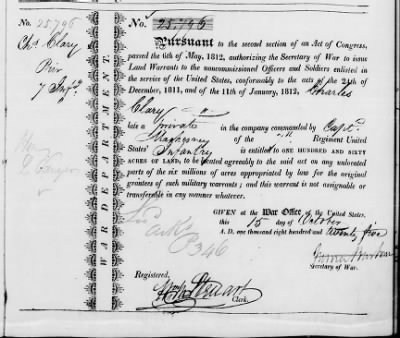 No. 25.796
Chs. Clary
Priv
7 Inf'd.
WAR DEPARTMENT.
No. 25.796
Pursuant to the second section of an Act of Congress,
passed the 6th of May, 1812, authorizing the Secretary of War to issue
Land Warrants to the noncommissioned Officers and Soldiers enlisted in
the service of the United States, conformably to the acts of the 24th of
December, 1811, and of the 11th of January, 1812, Charles
Clary
late a private in the company commanded by Capt.
Regiment United
States' Infantry is entitled to ONE HUNDRED AND SIXTY
ACRES OF LAND, to be located agreeably to the said act on any unlocated
parts of the six millions of acres appropriated by law for the original
grantees of such military warrants; and this warrant is not assignable or
transferable in any manner whatever.
GIVEN at the War Office of the United States,
this 15 day of October
A. D. one thousand eight hundred and twenty five
Secretary of War.
Ark
P 346
Registered,
Stuart
Clerk.